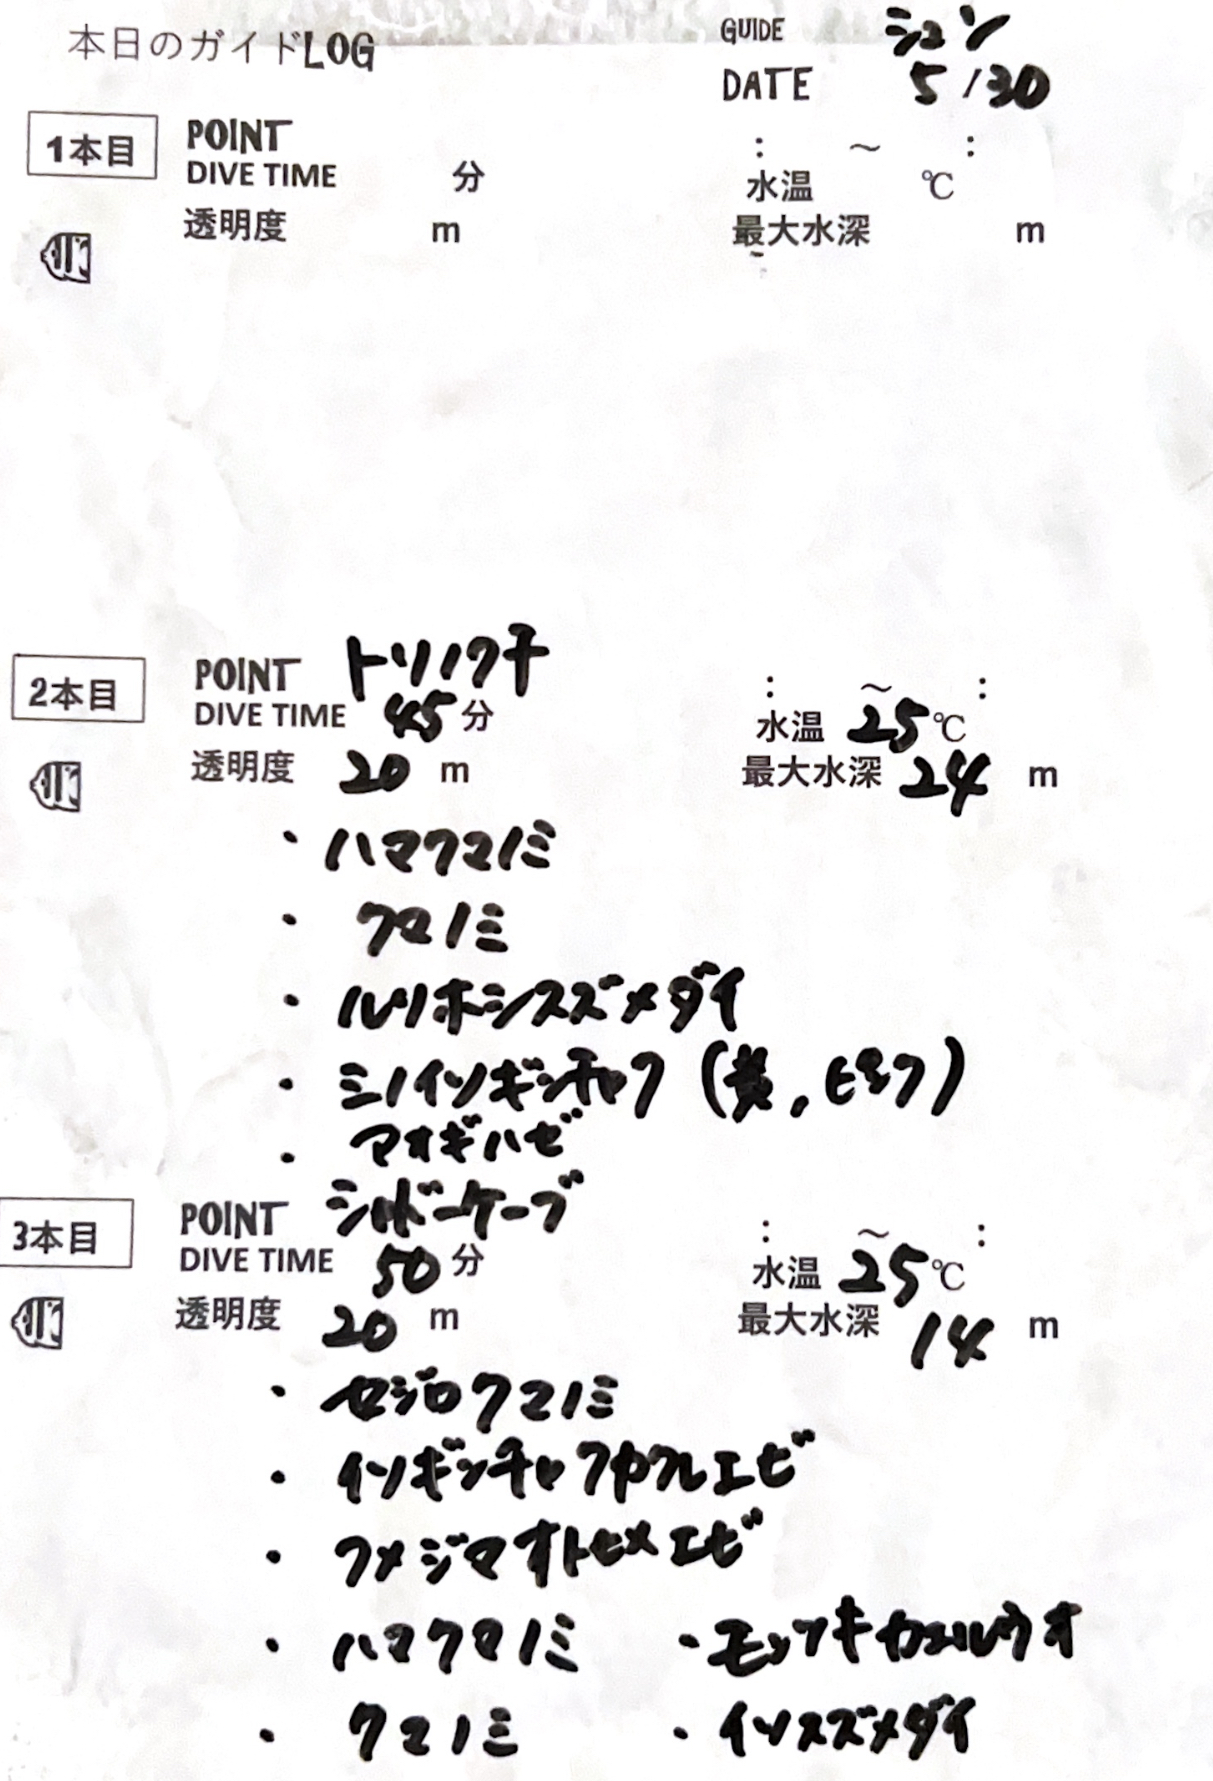 本日のガイドLOG
GUIDE シュン
DATE 5/30
1本目 POINT : ～ :
DIVE TIME 分 水温 ℃
透明度 m 最大水深 m
2本目 POINT トリノクチ : ～ :
DIVE TIME 45分 水温 25℃
透明度 20 m 最大水深 24 m
・ハマクマノミ
・クマノミ
・ルリホシスズメダイ
・ミノイソギンチャク(黄,ピンク)
・アオギハゼ
3本目 POINT シルバーケーブ : ～ :
DIVE TIME 50分 水温 25℃
透明度 20 m 最大水深 14 m
・セジロクマノミ
・イソギンチャクカクレエビ
・クメジマオトヒメエビ
・ハマクマノミ ・モンツキカエルウオ
・クマノミ ・イソスズメダイ